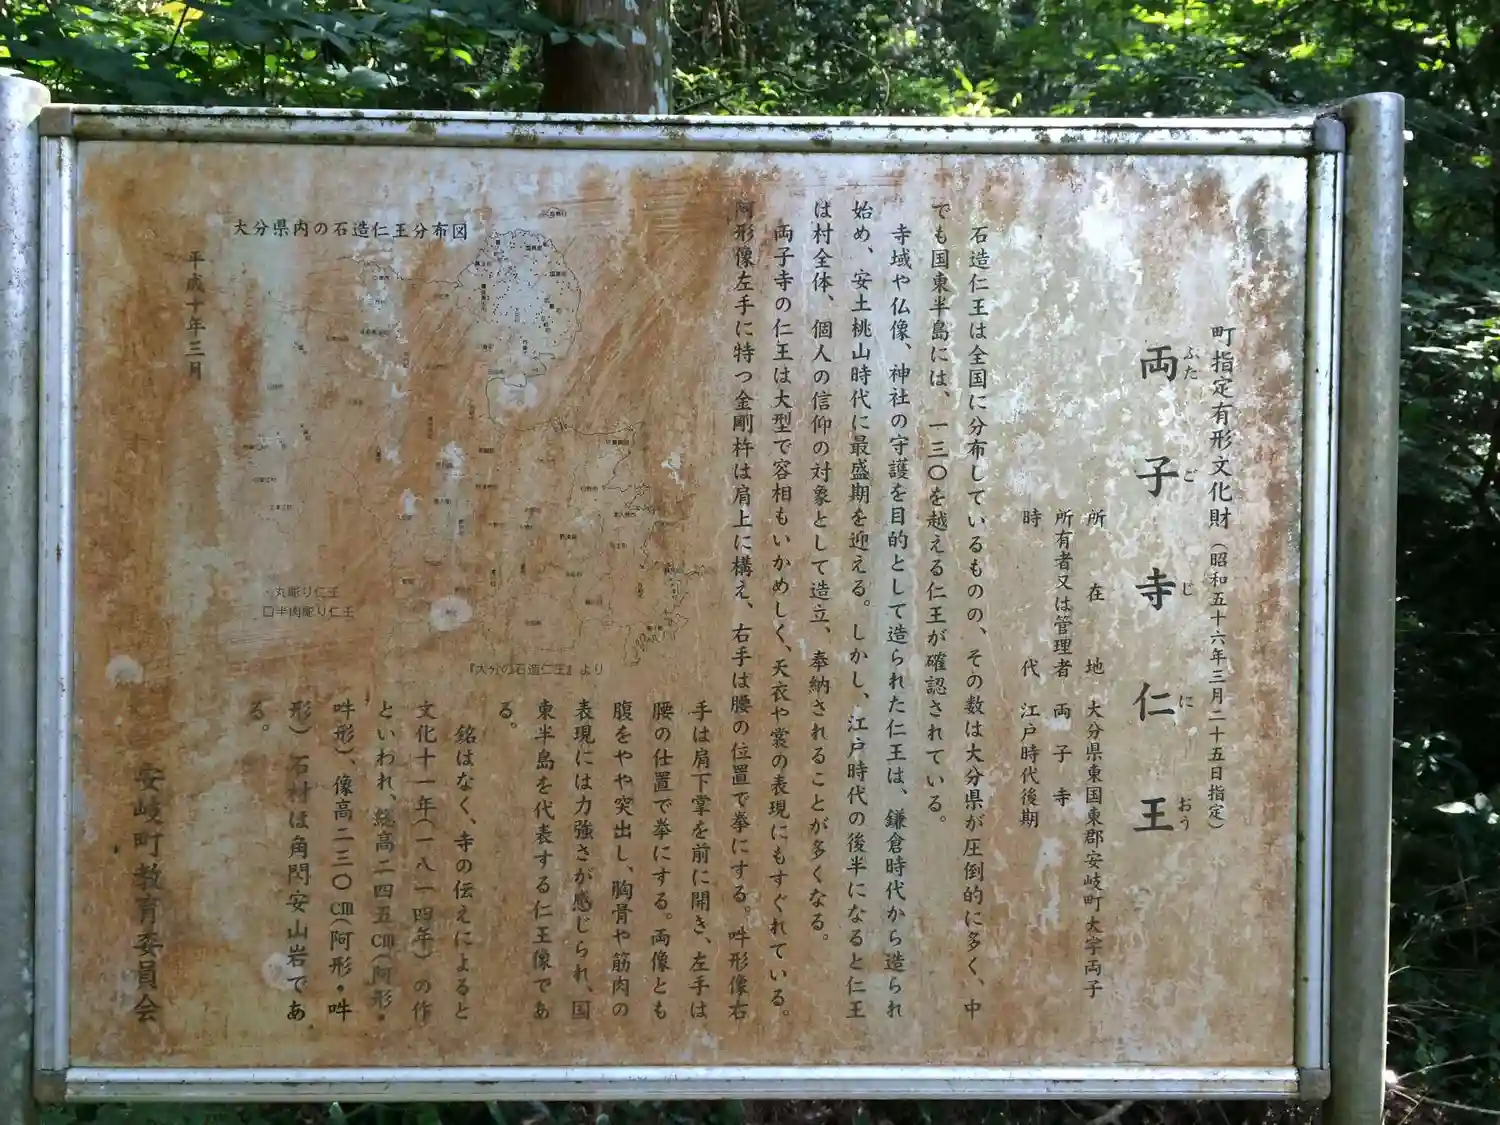 町指定有形文化財(昭和五十六年三月二十五日指定)
両子寺仁王
ふたごじにおう
所在地 大分県東国東郡安岐町大字両子
所有者又は管理者 両子寺
時代 江戸時代後期
石造仁王は全国に分布しているものの、その数は大分県が圧倒的に多く、中
でも国東半島には、一三〇を越える仁王が確認されている。
寺域や仏像、神社の守護を目的として造られた仁王は、鎌倉時代から造られ
始め、安土桃山時代に最盛期を迎える。しかし、江戸時代の後半になると仁王
は村全体、個人の信仰の対象として造立、奉納されることが多くなる。
両子寺の仁王は大型で容相もいかめしく、天衣や裳の表現にもすぐれている。
阿形像左手に特つ金剛杵は肩上に構え、右手は腰の位置で拳にする。吽形像右
手は肩下掌を前に開き、左手は
腰の仕置で拳にする。両像とも
腹をやや突出し、胸骨や筋肉の
表現には力強さが感じられ、国
東半島を代表する仁王像であ
る。
銘はなく、寺の伝えによると
文化十一年(一八一四年)の作
といわれ、総高二四五㎝(阿形・
吽形)、像高二三〇㎝(阿形・吽
形)石材は角閃安山岩であ
る。
大分県内の石造仁王分布図
・丸彫り仁王
□半肉彫り仁王
『大分の石造仁王』より
平成十年三月
安岐町教育委員会